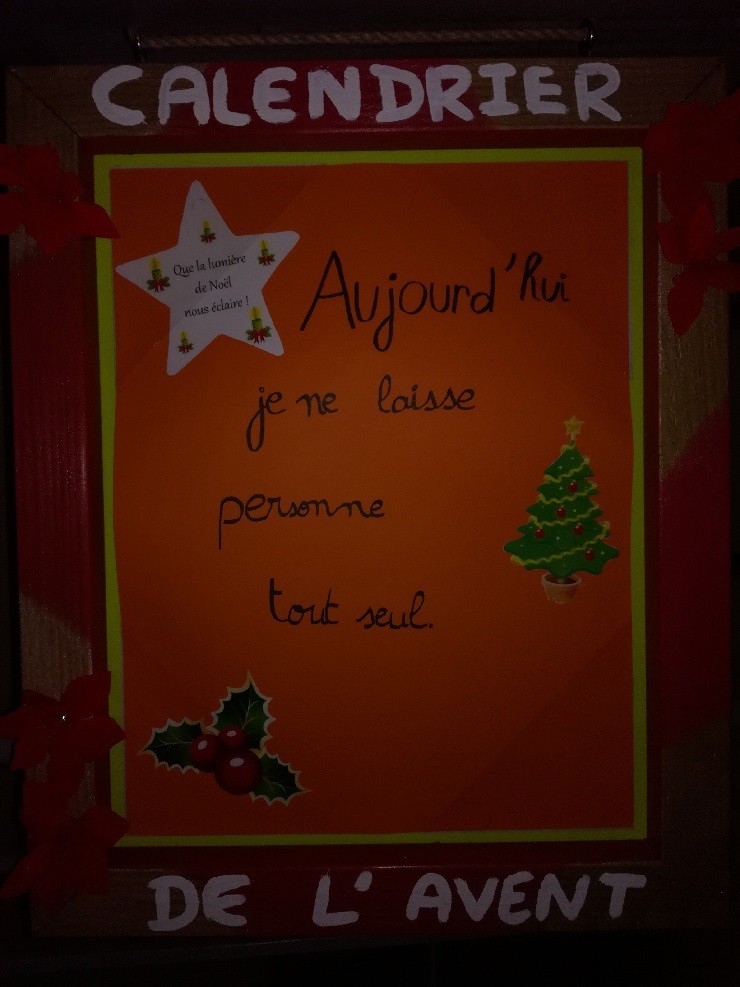 CALENDRIER
Que la lumière
de Noël
nous éclaire !
Aujourd'hui
je ne laisse
personne
tout seul.
DE L'AVENT